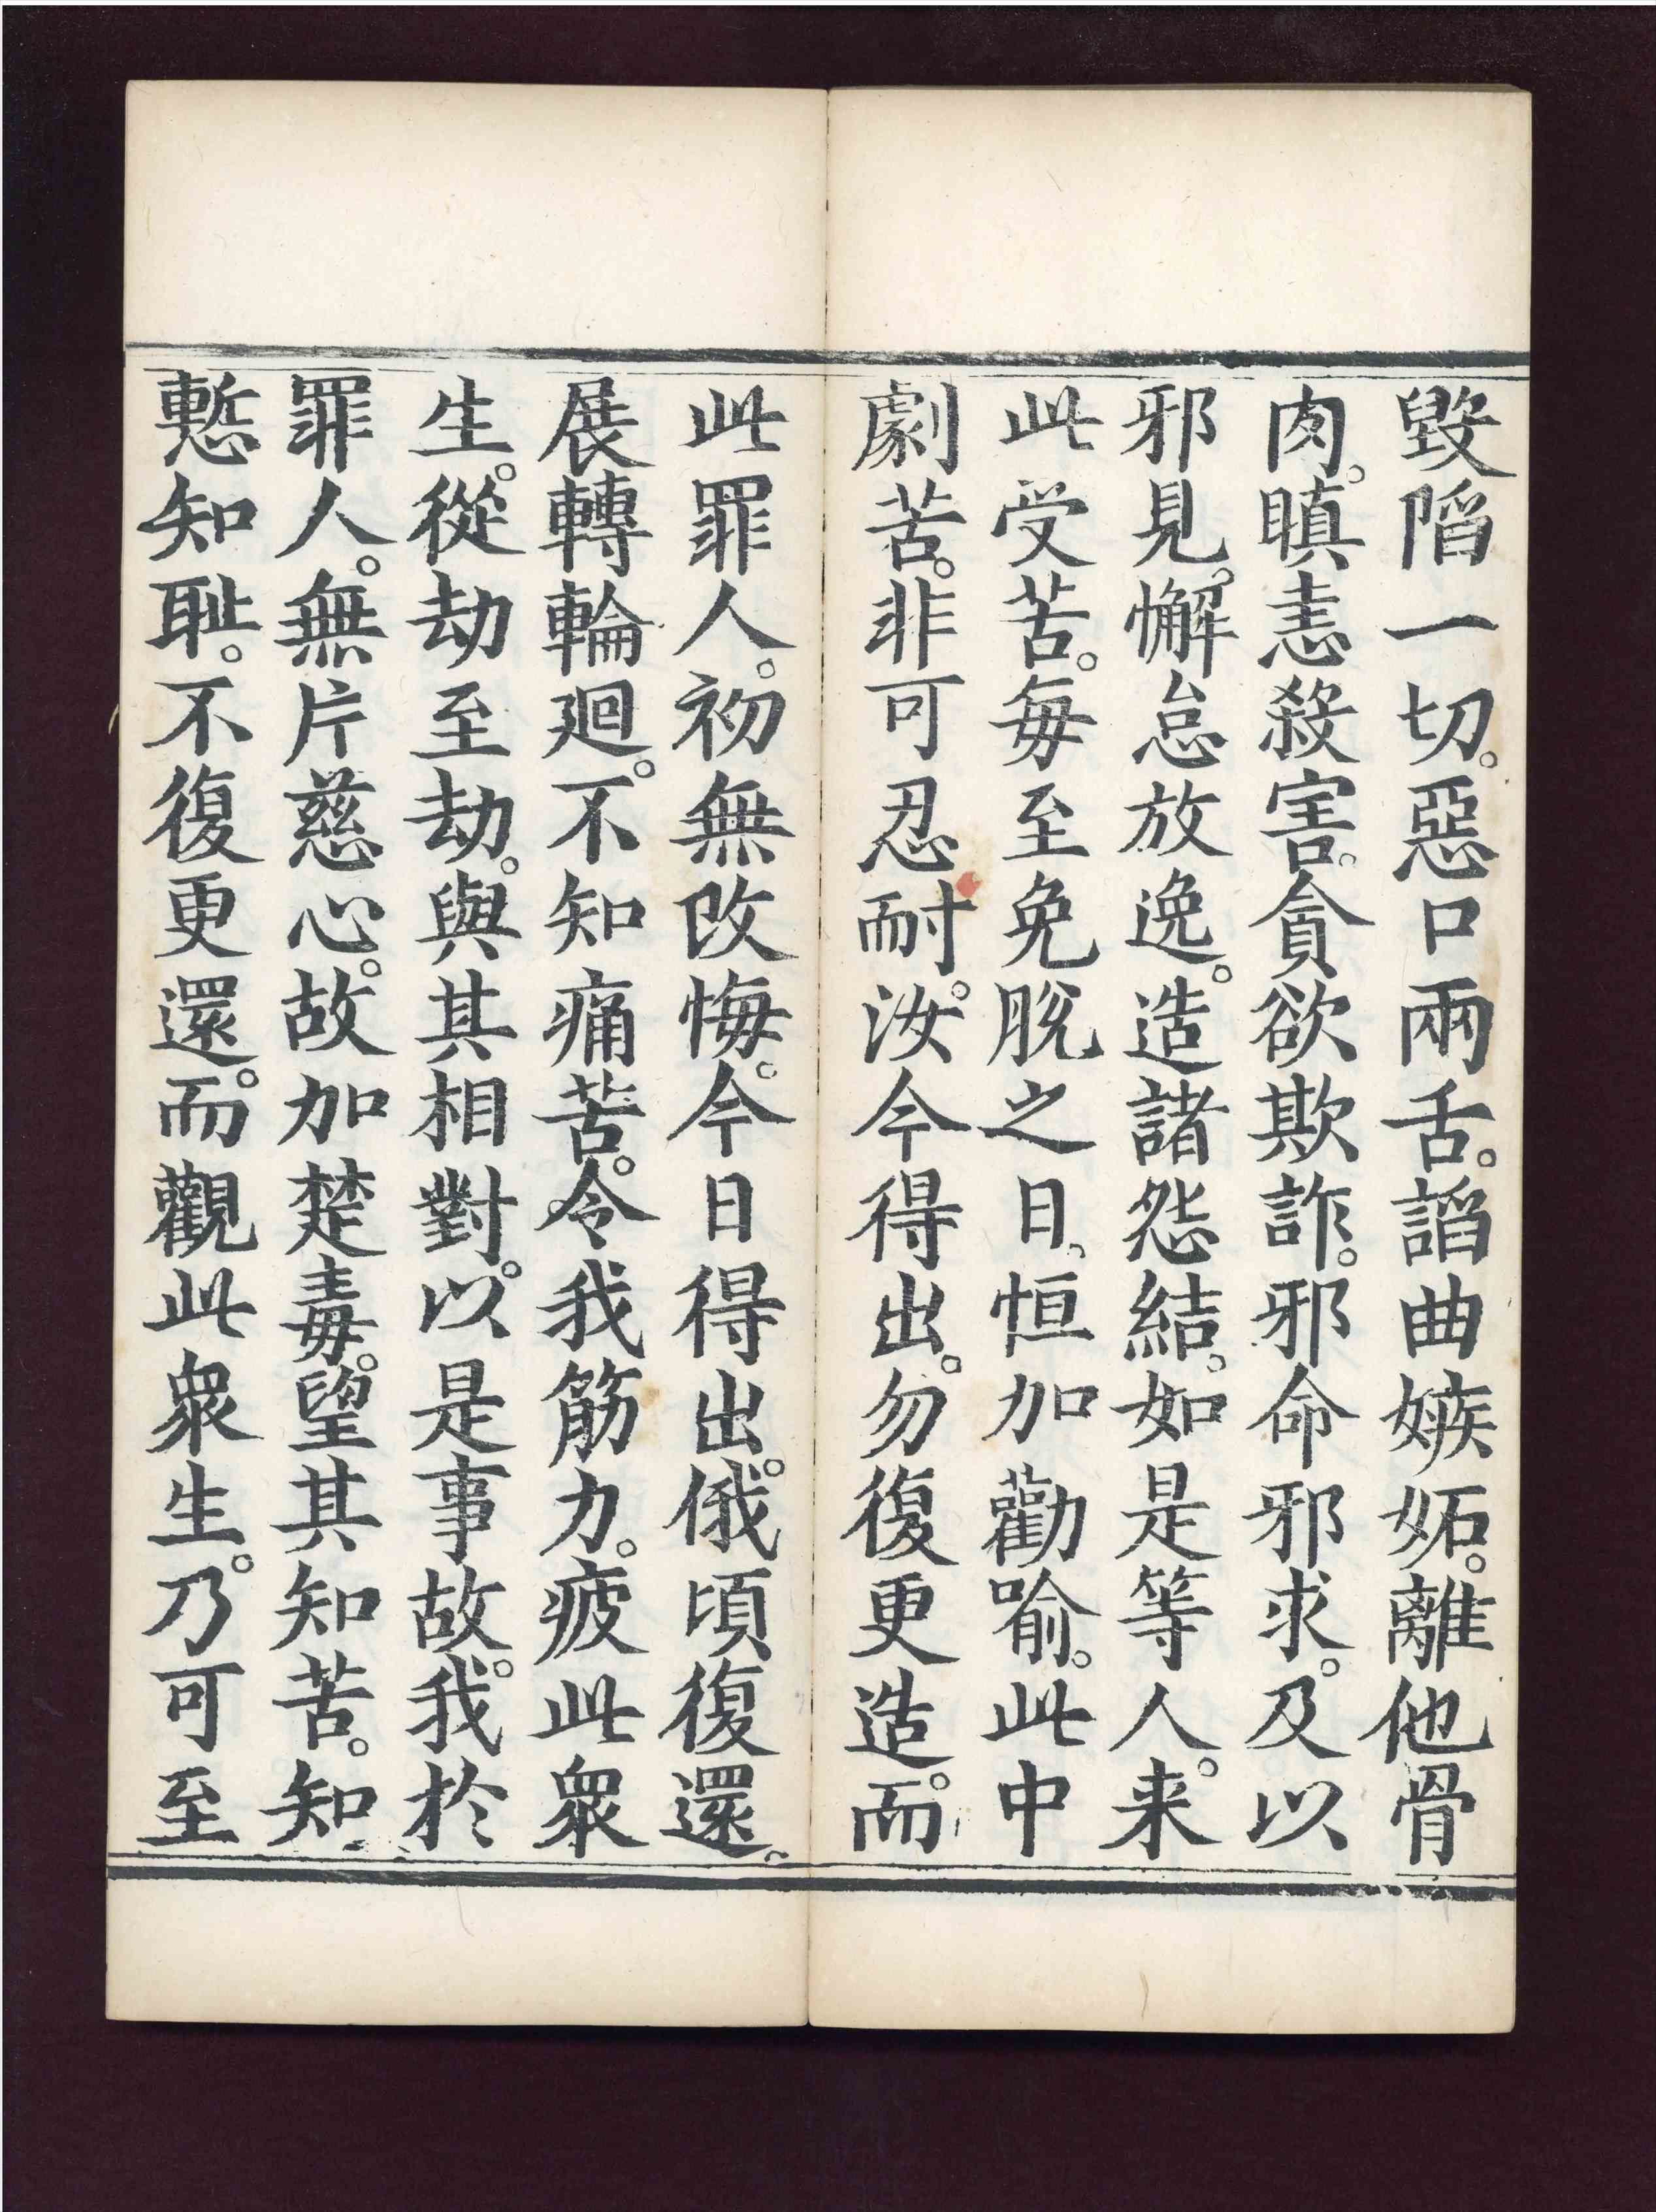 毀陷一切。惡口兩舌。諂曲嫉妬。離他骨
肉。瞋恚殺害。貪欲欺詐。邪命邪求。及以
邪見。懈怠放逸。造諸怨結。如是等人。来
此受苦。每至免脫之日、恒加勸喻。此中
劇苦。非可忍耐。汝今得出。勿復更造。而
此罪人。初無改悔。今日得出。俄頃復還。
展轉輪廻。不知痛苦。令我筋力。疲此衆
生。從劫至劫。與其相對。以是事故。我於
罪人。無片慈心。故加楚毒。望其知苦。知
慙知耻。不復更還。而觀此衆生。乃可至